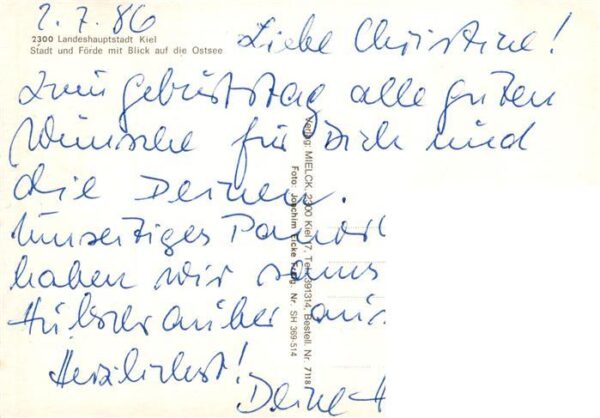 2.7.86
2300 Landeshauptstadt Kiel
Stadt und Förde mit Blick auf die Ostsee
Liebe Christine!
zum Geburtstag alle guten
Wünsche für Dich und
die Deinen.
Umseitiges Panora
haben wir
Herzlichst!
Deine H
Verlag: MIELCK, 2300 Kiel 17, Tel. 391314, Bestell. Nr. 7118
Foto: Joachim Freig. Nr. SH 369-514